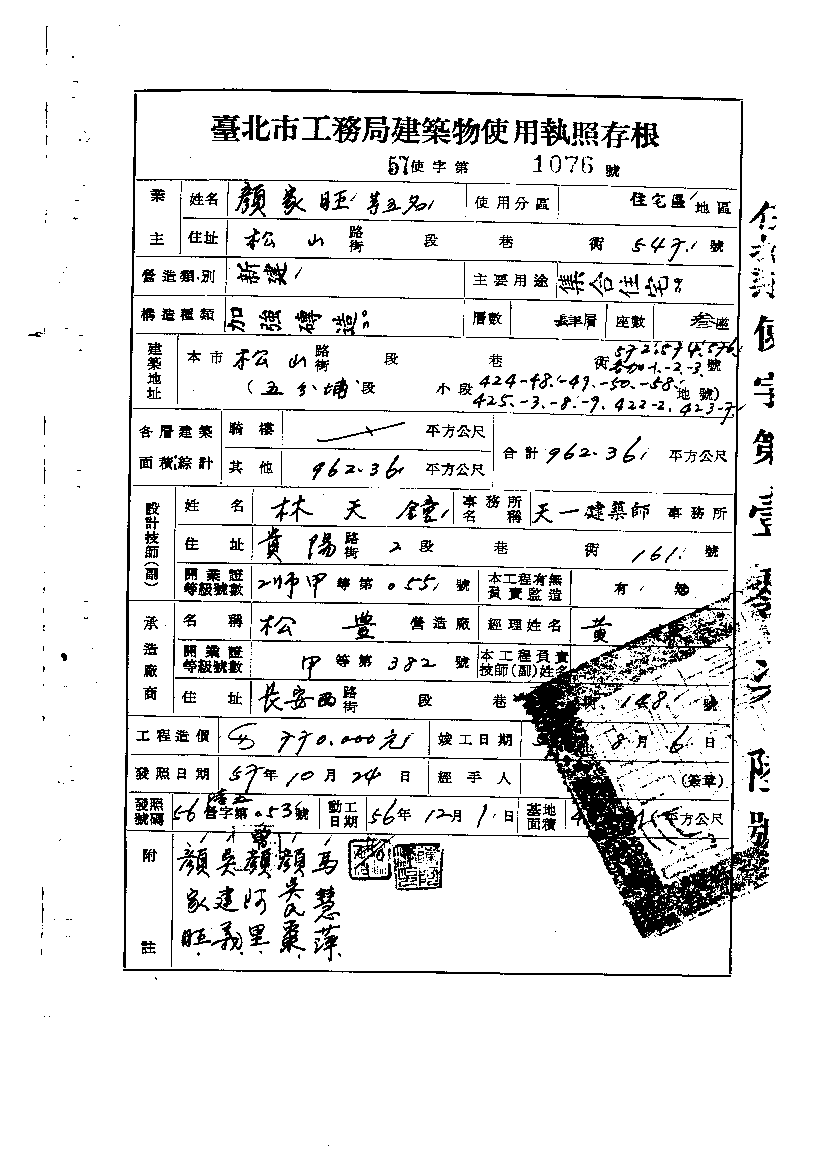 臺北市工務局建築物使用執照存根
57使字第 1076 號
業主 姓名 顏家旺等五名 使用分區 住宅區 地區
住址 松山 路街 段 巷 街 547 號
營造類別 新建 主要用途 集合住宅
構造種類 加強磚造 層數 層 座數 叁座
建築地址 本市 松山 路街 段 巷 街 572.574.576 號
(五分埔段 小段 424-48.-49.-50.-58. 地號)
425.-3.-8.-9. 422-2. 423-7
各層建築面積綜計 騎樓 平方公尺 合計 962.36 平方公尺
其他 962.36 平方公尺
設計技師(副) 姓名 林天 事務所名稱 天一建築師 事務所
住址 貴陽 路街 2段 巷 街 161 號
開業證等級號數 師甲等第 055 號 本工程有無負責監造 有
承造廠商 名稱 松豊 營造廠 經理姓名 黄
開業證等級號數 甲等第 382 號 本工程負責技師(副)姓名
住址 長安西 路街 段 巷 街 148 號
工程造價 770.000元 竣工日期 8月6日
發照日期 57年10月24日 經手人 (簽章)
發照號碼 56 營字第 053 號 動工日期 56年12月1日 基地面積 平方公尺
附註
顏家旺
吳建義
顏阿里
顏吳氏棗
馬慧萍
使字第壹零 陸號